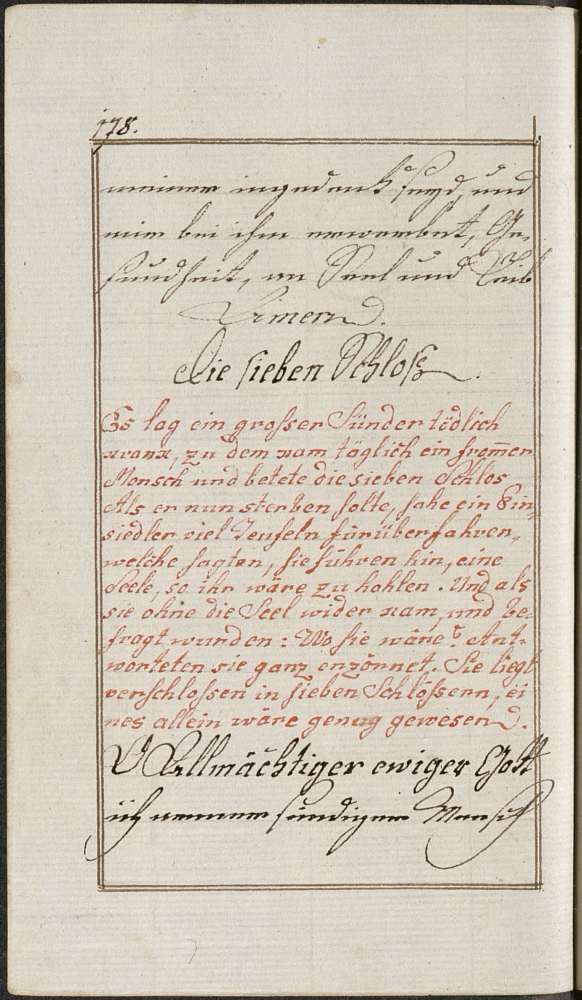 178.
meiner ingedenk seyd, und
mir bei ihm erwerbet, Ge-
sundheit, an Seel und Leib
Amen.
Die sieben Schloß.
Es lag ein großer Sünder tödlich
krank, zu dem kam täglich ein from̄er
Mensch und betete die sieben Schlos
Als er nun sterben solte, sahe ein Ein-
siedler viel Teufeln fürüberfahren,
welche sagten, sie führen hin, eine
Seele, so ihr wäre zu hohlen. Und als
sie ohne die Seel wider kam, und be-
fragt wurden: Wo sie wäre? Ant-
worteten sie ganz erzörnet. Sie liegt
verschloßen in sieben Schlößern, ei
nes allein wäre genug gewesen.
O Allmächtiger ewiger Gott
ich armer sündiger Mensch